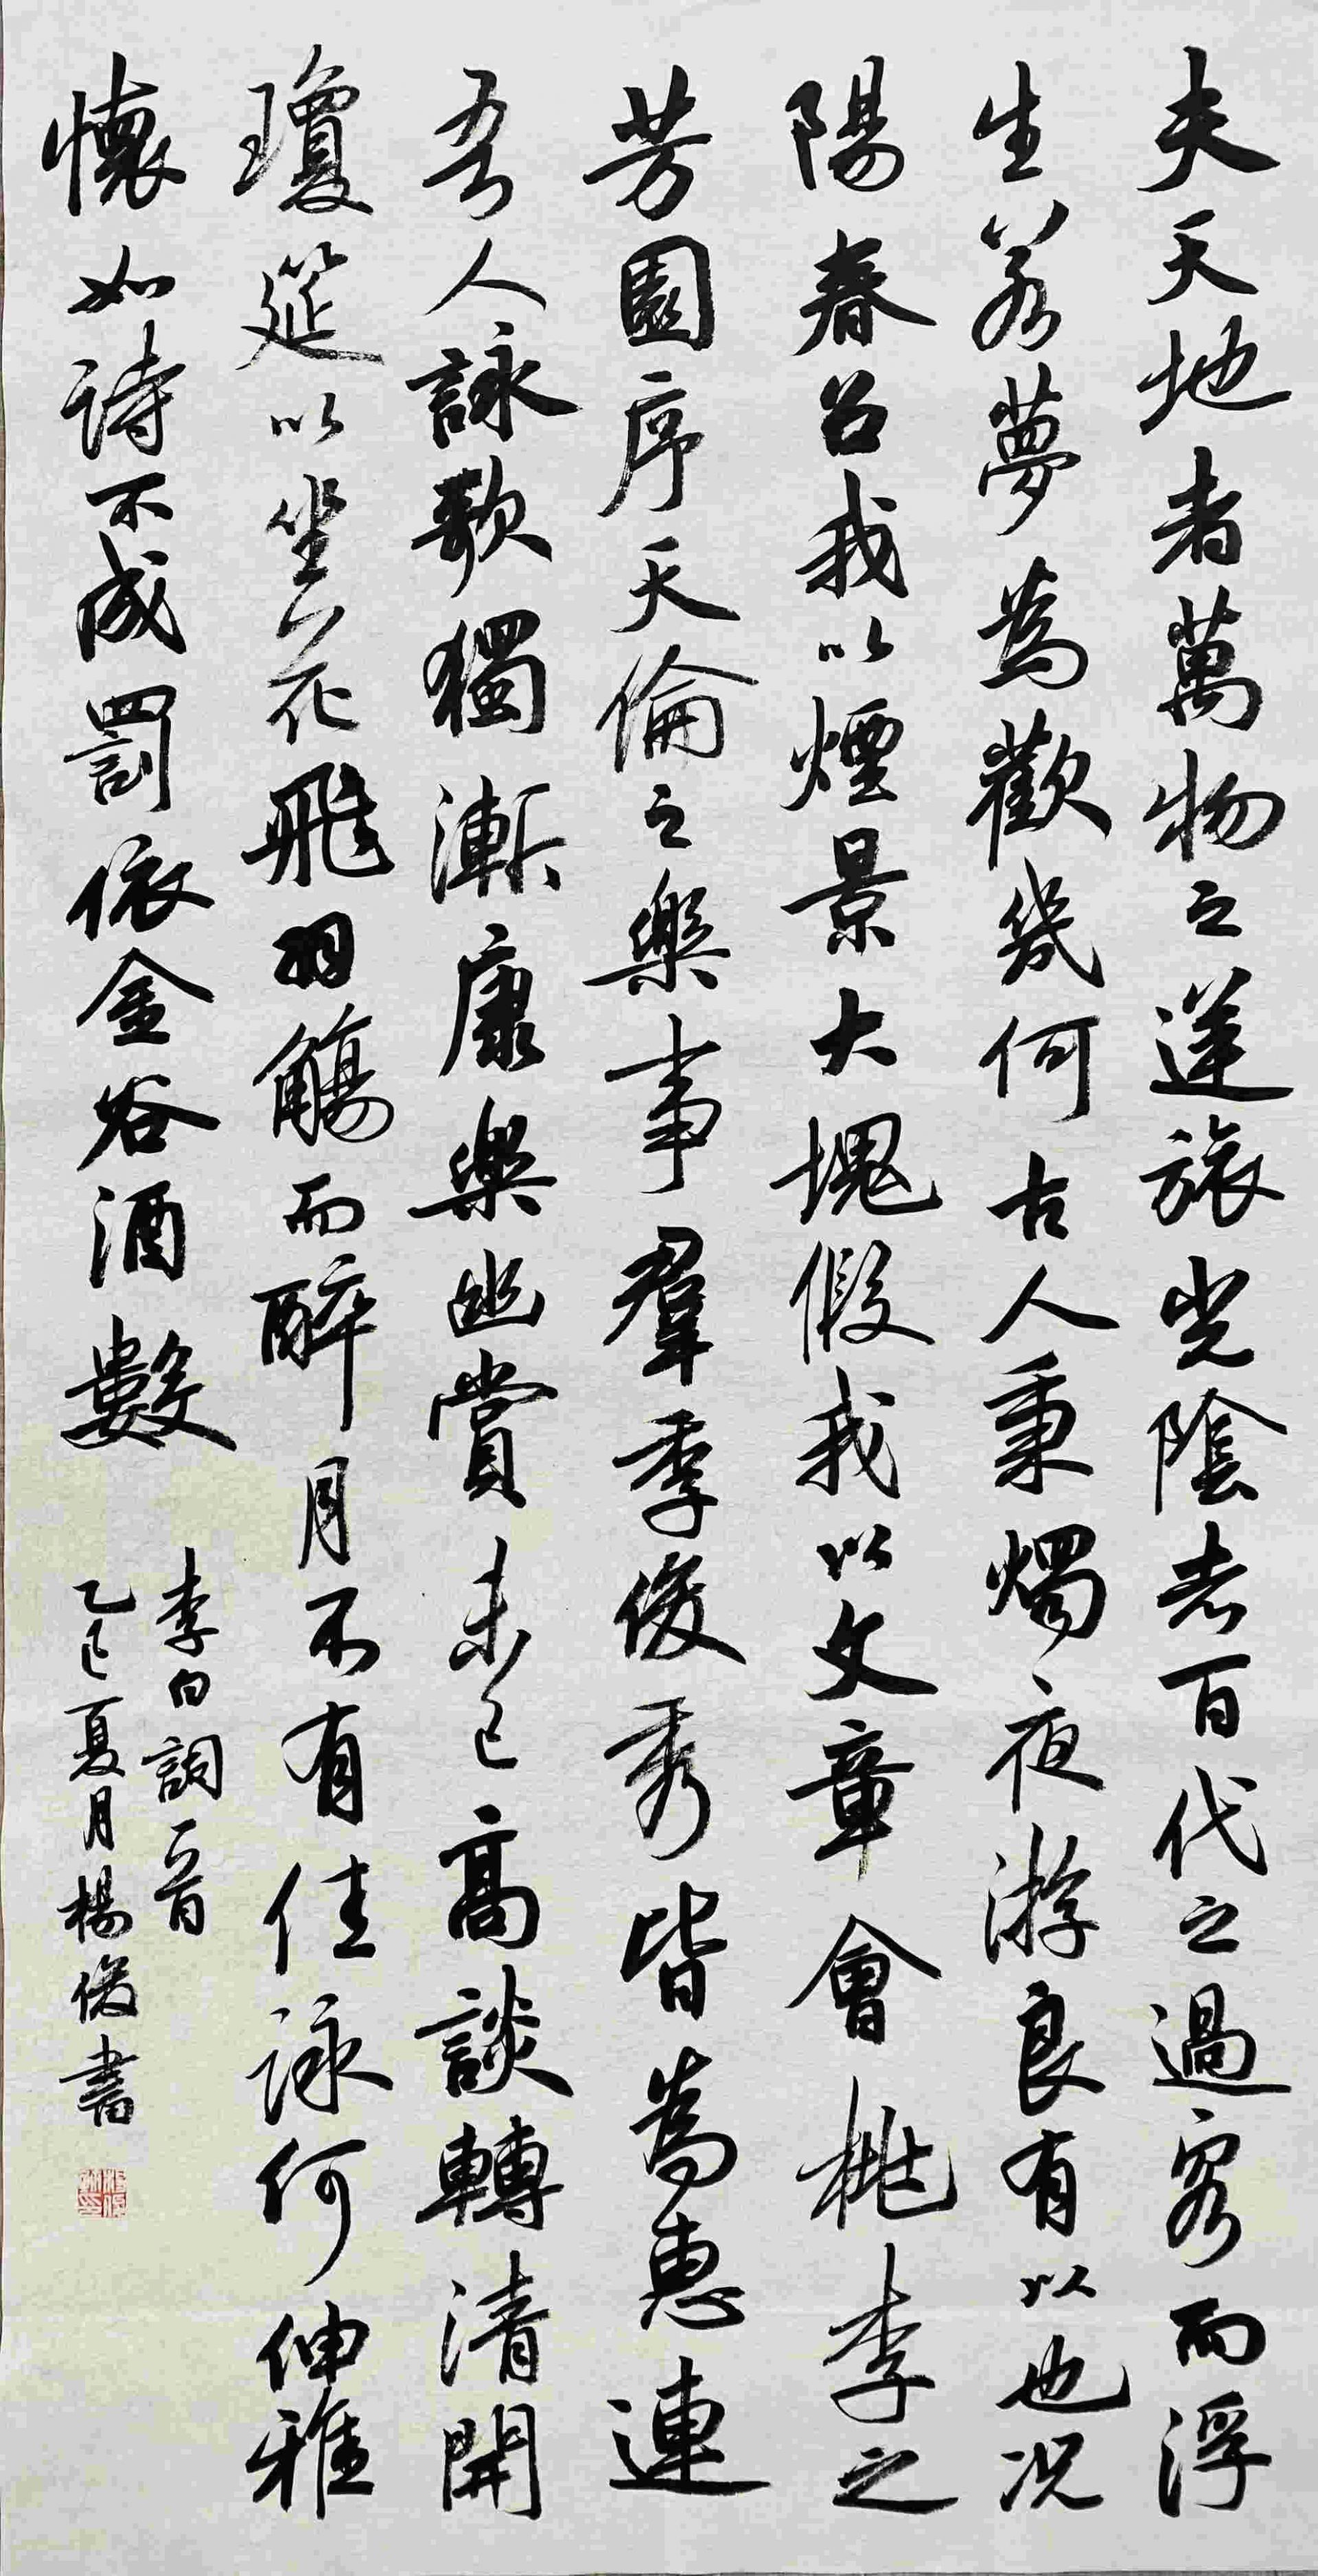 夫天地者萬物之逆旅光陰者百代之過客而浮
生若夢為歡幾何古人秉燭夜游良有以也况
陽春召我以煙景大塊假我以文章會桃李之
芳園序天倫之樂事羣季俊秀皆為惠連
吾人詠歌獨漸康樂幽賞未已高談轉清開
瓊筵以坐花飛羽觴而醉月不有佳詠何伸雅
懷如詩不成罰依金谷酒數
李白詞一首
乙巳夏月楊俊書